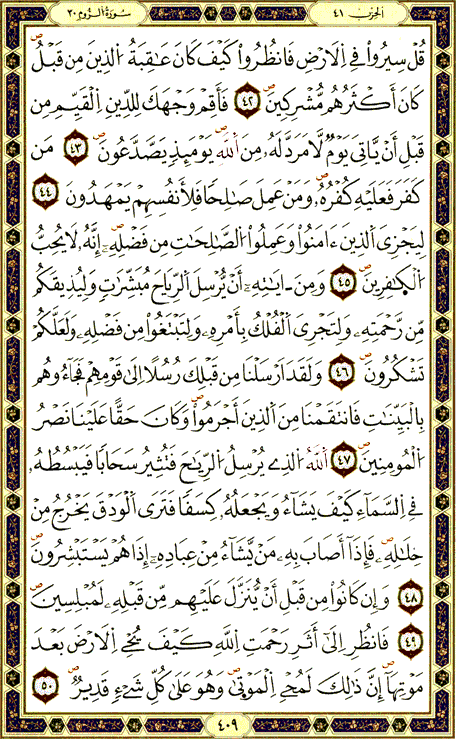 الحزب ٤١
سُورَةُ الرُّوم ٣٠
قُلْ سِيرُوا۟ فِے اِ۬لَارْضِ فَانظُرُوا۟ كَيْفَ كَانَ عَٰقِبَةُ اُ۬لذِينَ مِن قَبْلُۖ
كَانَ أَكْثَرُهُم مُّشْرِكِينَۖ ٤٢ فَأَقِمْ وَجْهَكَ لِلدِّينِ اِ۬لْقَيِّمِ مِن
قَبْلِ أَنْ يَّاتِيَ يَوْمٞ لَّا مَرَدَّ لَهُۥ مِنَ اَ۬للَّهِۖ يَوْمَئِذٖ يَصَّدَّعُونَۖ ٤٣ مَن
كَفَرَ فَعَلَيْهِ كُفْرُهُۥۖ وَمَنْ عَمِلَ صَٰلِحاٗ فَلِأَنفُسِهِمْ يَمْهَدُونَ ٤٤
لِيَجْزِيَ اَ۬لذِينَ ءَامَنُوا۟ وَعَمِلُوا۟ اُ۬لصَّٰلِحَٰتِ مِن فَضْلِهِۦٓۖ إِنَّهُۥ لَا يُحِبُّ
اُ۬لْكٰ۪فِرِينَۖ ٤٥ وَمِنَ اٰيَٰتِهِۦٓ أَنْ يُّرْسِلَ اَ۬لرِّيَاحَ مُبَشِّرَٰتٖ وَلِيُذِيقَكُم
مِّن رَّحْمَتِهِۦ وَلِتَجْرِيَ اَ۬لْفُلْكُ بِأَمْرِهِۦ وَلِتَبْتَغُوا۟ مِن فَضْلِهِۦ وَلَعَلَّكُمْ
تَشْكُرُونَۖ ٤٦ وَلَقَدَ اَرْسَلْنَا مِن قَبْلِكَ رُسُلاً اِلَىٰ قَوْمِهِمْ فَجَآءُوهُم
بِالْبَيِّنَٰتِ فَانتَقَمْنَا مِنَ اَ۬لذِينَ أَجْرَمُوا۟ۖ وَكَانَ حَقّاً عَلَيْنَا نَصْرُ
اُ۬لْمُومِنِينَۖ ٤٧ اَ۬للَّهُ اُ۬لذِے يُرْسِلُ اُ۬لرِّيَٰحَ فَتُثِيرُ سَحَاباٗ فَيَبْسُطُهُۥ
فِے اِ۬لسَّمَآءِ كَيْفَ يَشَآءُ وَيَجْعَلُهُۥ كِسَفاٗ فَتَرَى اَ۬لْوَدْقَ يَخْرُجُ مِنْ
خِلَٰلِهِۦۖ فَإِذَآ أَصَابَ بِهِۦ مَنْ يَّشَآءُ مِنْ عِبَادِهِۦٓ إِذَا هُمْ يَسْتَبْشِرُونَۖ
٤٨ وَإِن كَانُوا۟ مِن قَبْلِ أَنْ يُّنَزَّلَ عَلَيْهِم مِّن قَبْلِهِۦ لَمُبْلِسِينَۖ
٤٩ فَانظُرِ اِلَىٰٓ أَثَرِ رَحْمَتِ اِ۬للَّهِ كَيْفَ يُحْيِ اِ۬لَارْضَ بَعْدَ
مَوْتِهَآۖ إِنَّ ذَٰلِكَ لَمُحْيِ اِ۬لْمَوْت۪يٰۖ وَهُوَ عَلَىٰ كُلِّ شَےْءٖ قَدِيرٞۖ ٥٠
٤٠٩